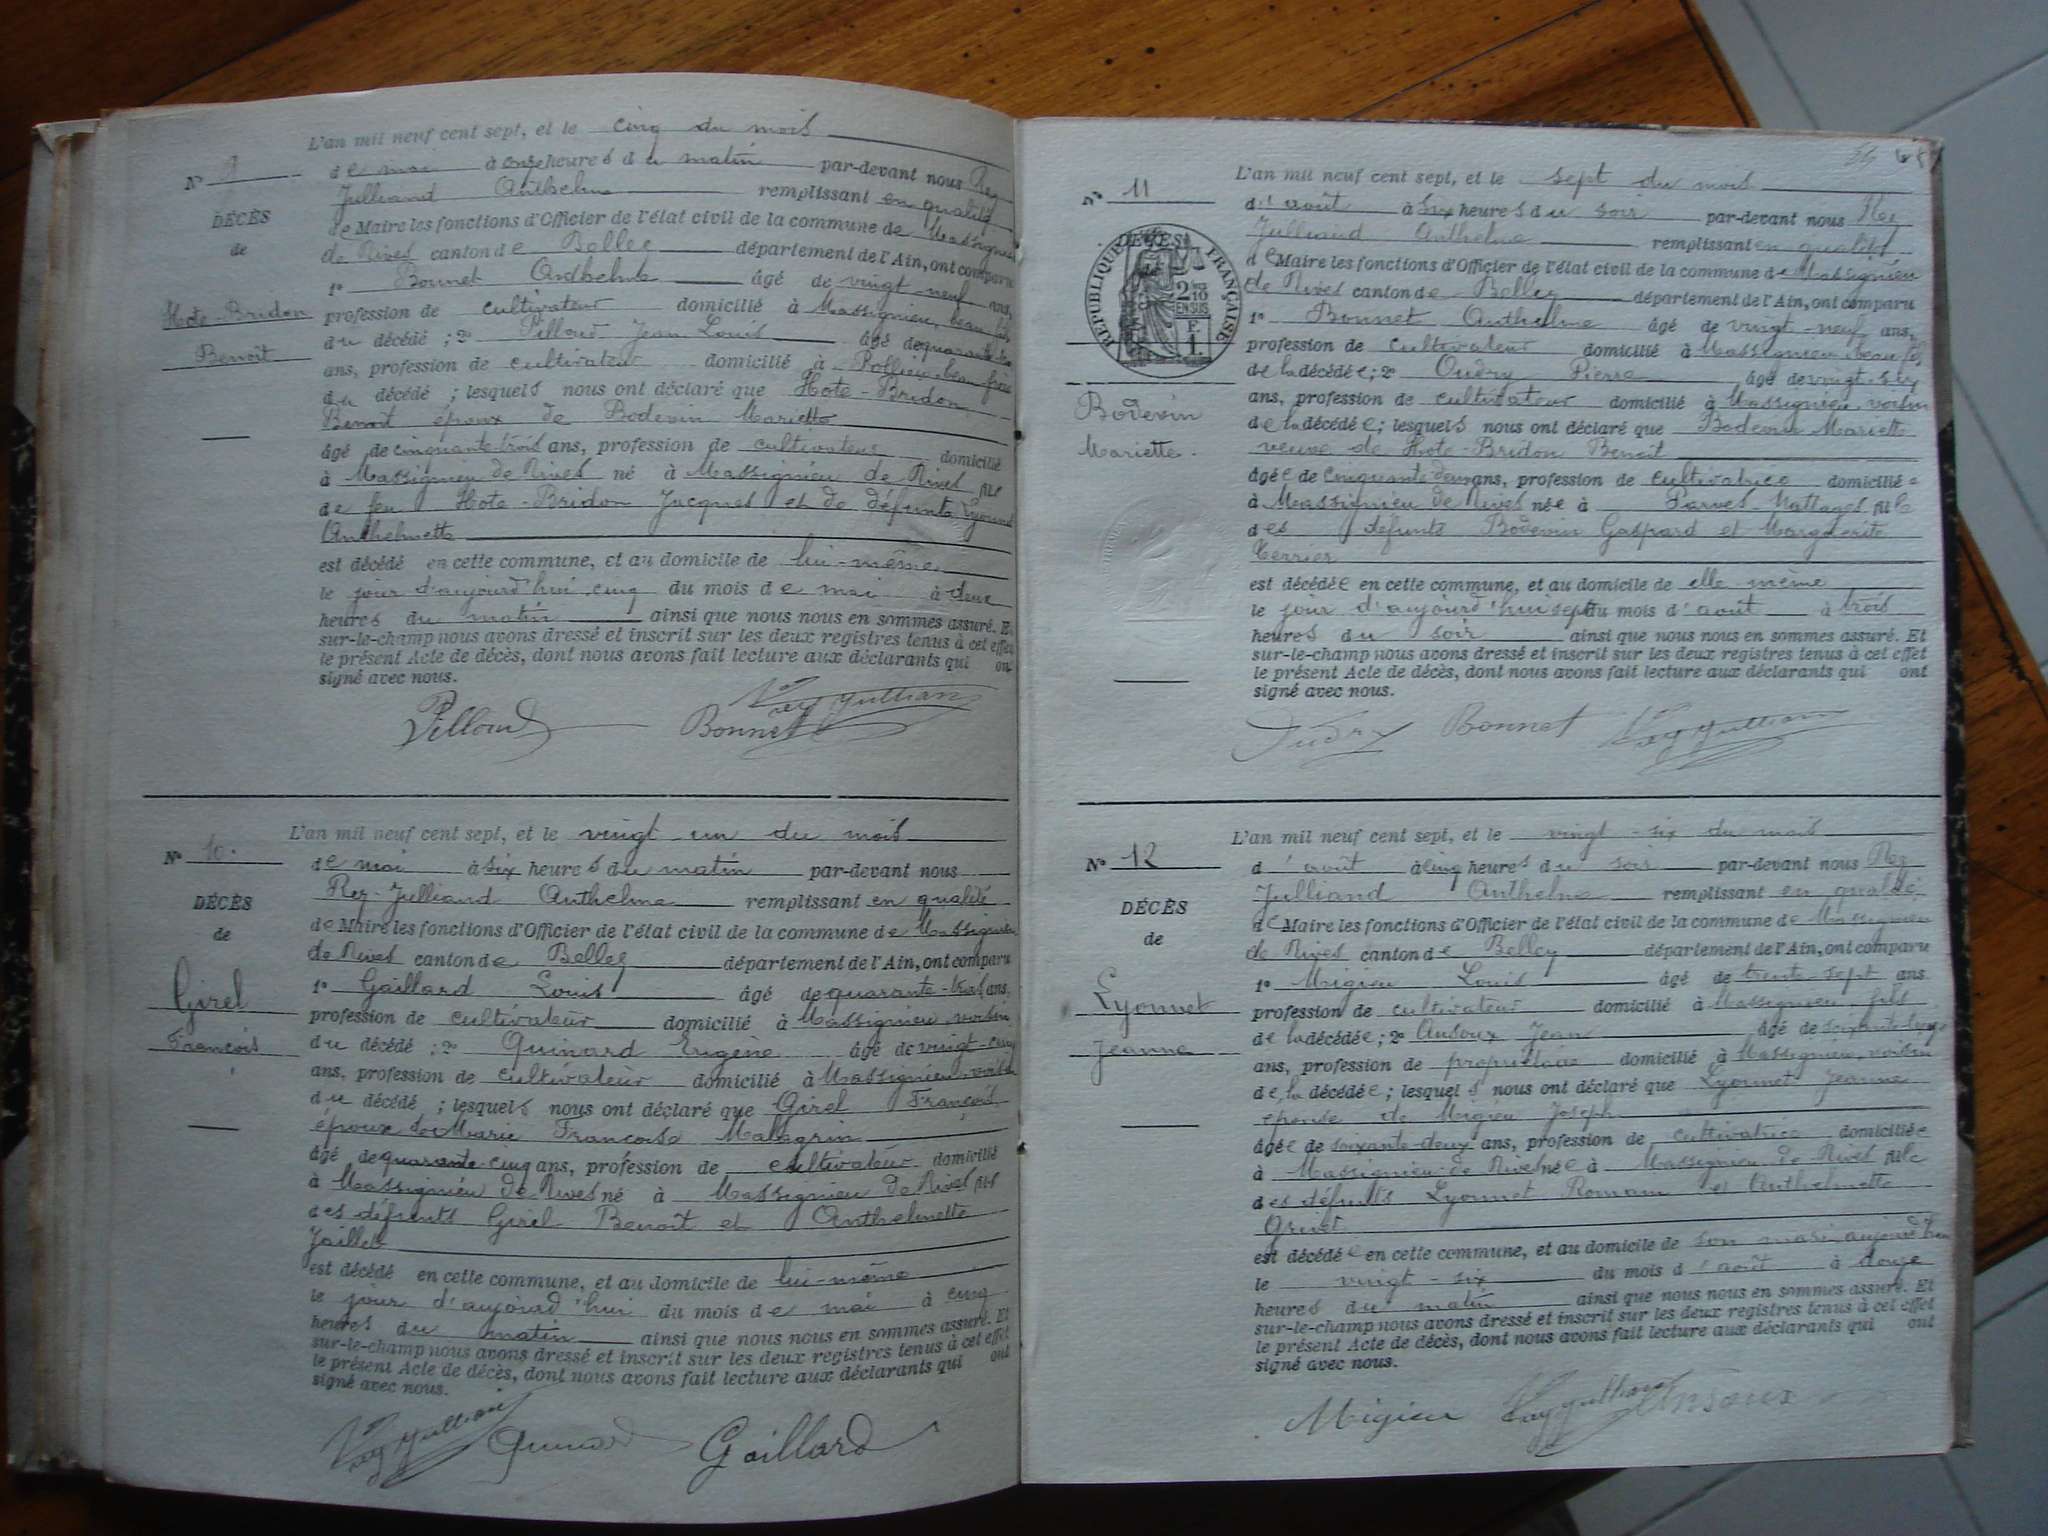 L'an mil neuf cent sept, et le cinq du mois
N° 9 de mai à onze heures du matin par-devant nous Rey
Julliand Anthelme remplissant en qualité
DÉCÈS
de Maire les fonctions d'Officier de l'état civil de la commune de Massignieu
de
de Rives canton de Belley département de l'Ain, ont comparu
1° Bonnet Anthelme âgé de vingt neuf ans,
Hote-Bridon
profession de cultivateur domicilié à Massignieu, beau fils
Benoît
du décédé ; 2° Pilloud Jean Louis âgé de quarante
ans, profession de cultivateur domicilié à Pollieu, beau frère
du décédé ; lesquels nous ont déclaré que Hote-Bridon
Benoît époux de Bodevin Mariette
âgé de cinquante trois ans, profession de cultivateur domicilié
à Massignieu de Rives né à Massignieu de Rives fils
de feu Hote-Bridon Jacques et de défunte Lyonnet
Anthelmette
est décédé en cette commune, et au domicile de lui-même
le jour d'aujourd'hui cinq du mois de mai à deux
heures du matin ainsi que nous nous en sommes assuré. Et
sur-le-champ nous avons dressé et inscrit sur les deux registres tenus à cet effet
le présent Acte de décès, dont nous avons fait lecture aux déclarants qui ont
signé avec nous.
Pilloud Bonnet Rey Julliand
L'an mil neuf cent sept, et le vingt un du mois
N° 10. de mai à six heures du matin par-devant nous
Rey-Julliand Anthelme remplissant en qualité
DÉCÈS
de Maire les fonctions d'Officier de l'état civil de la commune de Massignieu
de
de Rives canton de Belley département de l'Ain, ont comparu
1° Gaillard Louis âgé de quarante-trois ans,
Girel
profession de cultivateur domicilié à Massignieu, voisin
François
du décédé ; 2° Quinard Eugène âgé de vingt-cinq
ans, profession de cultivateur domicilié à Massignieu, voisin
du décédé ; lesquels nous ont déclaré que Girel François
époux de Marie Françoise Malegrin
âgé de quarante-cinq ans, profession de cultivateur domicilié
à Massignieu de Rives né à Massignieu de Rives fils
des défunts Girel Benoît et Anthelmette
Jaillet
est décédé en cette commune, et au domicile de lui-même
le jour d'aujourd'hui du mois de mai à cinq
heures du matin ainsi que nous nous en sommes assuré. Et
sur-le-champ nous avons dressé et inscrit sur les deux registres tenus à cet effet
le présent Acte de décès, dont nous avons fait lecture aux déclarants qui ont
signé avec nous.
Rey Julliand Quinard Gaillard
L'an mil neuf cent sept, et le sept du mois
N° 11 d'août à six heures du soir par-devant nous Rey
Julliand Anthelme remplissant en qualité
DÉCÈS
RÉPUBLIQUE FRANÇAISE
2/10 EN SUS
F. 1.
de Maire les fonctions d'Officier de l'état civil de la commune de Massignieu
de Rives canton de Belley département de l'Ain, ont comparu
1° Bonnet Anthelme âgé de vingt-neuf ans,
profession de cultivateur domicilié à Massignieu, beau fils
de la décédée ; 2° Oudry Pierre âgé de vingt-six
Bodevin
ans, profession de cultivateur domicilié à Massignieu, voisin
de la décédée ; lesquels nous ont déclaré que Bodevin Mariette
Mariette.
veuve de Hote-Bridon Benoît
âgée de cinquante deux ans, profession de cultivatrice domiciliée
à Massignieu de Rives née à Parves-Nattages fille
des défunts Bodevin Gaspard et Marguerite
Terrier
est décédée en cette commune, et au domicile de elle même
le jour d'aujourd'hui sept du mois d'août à trois
heures du soir ainsi que nous nous en sommes assuré. Et
sur-le-champ nous avons dressé et inscrit sur les deux registres tenus à cet effet
le présent Acte de décès, dont nous avons fait lecture aux déclarants qui ont
signé avec nous.
Oudry Bonnet Rey Julliand
L'an mil neuf cent sept, et le vingt-six du mois
N° 12 d'août à cinq heures du soir par-devant nous Rey
Julliand Anthelme remplissant en qualité
DÉCÈS
de Maire les fonctions d'Officier de l'état civil de la commune de Massignieu
de
de Rives canton de Belley département de l'Ain, ont comparu
1° Migieu Louis âgé de trente-sept ans
Lyonnet
profession de cultivateur domicilié à Massignieu, fils
Jeanne
de la décédée ; 2° Ansoux Jean âgé de soixante
ans, profession de propriétaire domicilié à Massignieu, voisin
de la décédée ; lesquels nous ont déclaré que Lyonnet Jeanne
épouse de Migieu Joseph
âgée de soixante-deux ans, profession de cultivatrice domiciliée
à Massignieu de Rives née à Massignieu de Rives fille
des défunts Lyonnet Romain et Anthelmette
Grinet
est décédée en cette commune, et au domicile de son mari, aujourd'hui
le vingt-six du mois d'août à douze
heures du matin ainsi que nous nous en sommes assuré. Et
sur-le-champ nous avons dressé et inscrit sur les deux registres tenus à cet effet
le présent Acte de décès, dont nous avons fait lecture aux déclarants qui ont
signé avec nous.
Migieu Rey Julliand Ansoux